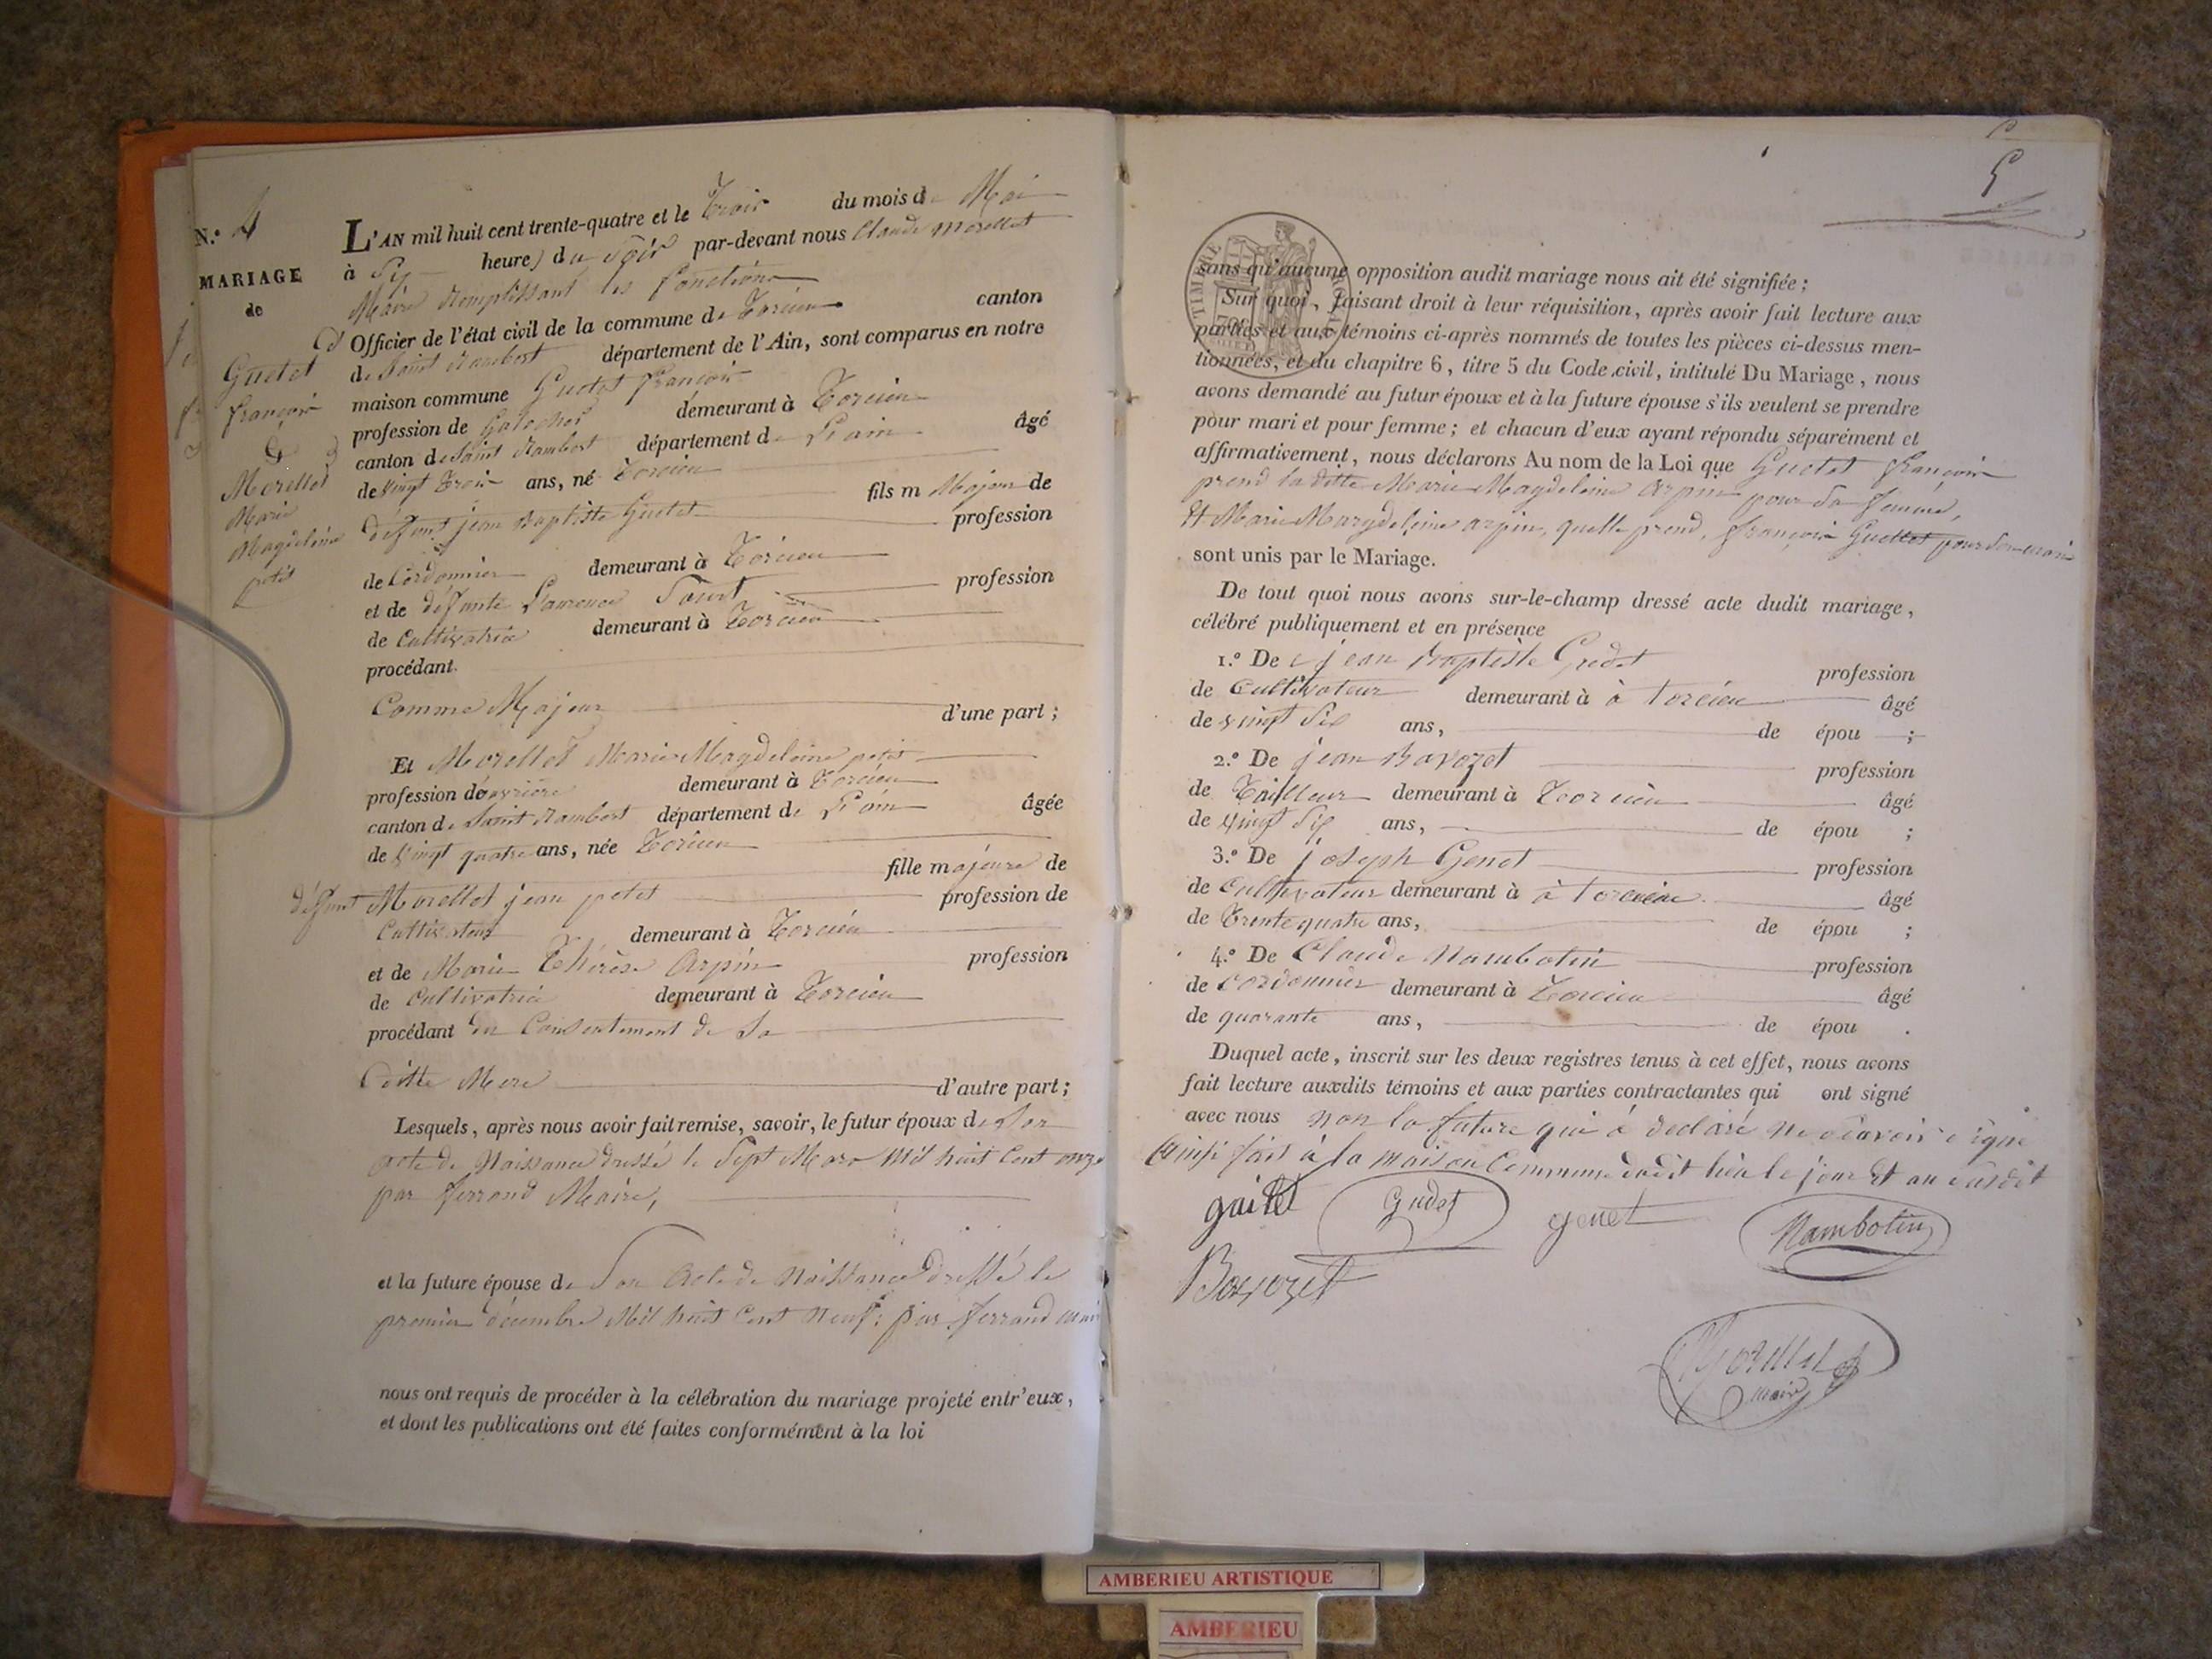 N.º 4
MARIAGE
de
Guetet
françois
&
Morellet
Marie
Magdeleine
petit
L'AN mil huit cent trente-quatre et le Trois du mois de Mai
à Six heures du Soir par-devant nous Claude Morellet
Maire Remplissant les fonctions
d'Officier de l'état civil de la commune de Torcieu canton
de Saint Rambert département de l'Ain, sont comparus en notre
maison commune Guetet françois
profession de Galocher demeurant à Torcieu
canton de Saint Rambert département de L'ain âgé
de Vingt Trois ans, né Torcieu
fils m Majeur de
défunt jean Baptiste Guetet profession
de Cordonnier demeurant à Torcieu
et de défunte Laurence profession
de Cultivatrice demeurant à Torcieu
procédant
Comme Majeur d'une part ;
Et Morellet Marie Magdeleine petit
profession d'ouvrière demeurant à Torcieu
canton de Saint Rambert département de L'ain âgée
de Vingt quatre ans, née Torcieu
fille majeure de
défunt Morellet jean petit profession de
Cultivateur demeurant à Torcieu
et de Marie Thérèse Arpin profession
de Cultivatrice demeurant à Torcieu
procédant du Consentement de Sa
ditte Mere d'autre part ;
Lesquels, après nous avoir fait remise, savoir, le futur époux de Son
acte de Naissance dressé le Sept Mars Mil huit Cent onze
par ferrand Maire,
et la future épouse de Son Acte de Naissance dressé le
premier décembre Mil huit Cent Neuf: par ferrand mair
nous ont requis de procéder à la célébration du mariage projeté entr'eux,
et dont les publications ont été faites conformément à la loi
5
TIMBRE ROYAL
sans qu'aucune opposition audit mariage nous ait été signifiée ;
Sur quoi, faisant droit à leur réquisition, après avoir fait lecture aux
parties et aux témoins ci-après nommés de toutes les pièces ci-dessus men-
tionnées, et du chapitre 6, titre 5 du Code civil, intitulé Du Mariage, nous
avons demandé au futur époux et à la future épouse s'ils veulent se prendre
pour mari et pour femme ; et chacun d'eux ayant répondu séparément et
affirmativement, nous déclarons Au nom de la Loi que Guetet françois
prend laditte Marie Magdeleine arpin pour Sa femme,
Et Marie Marydeleine arpin, quelle prend, françois Guettet pour Son mari
sont unis par le Mariage.
De tout quoi nous avons sur-le-champ dressé acte dudit mariage,
célébré publiquement et en présence
1.º De jean Baptiste Gudet profession
de Cultivateur demeurant à à torcieu âgé
de vingt Six ans, de épou ;
2.º De jean Bavozet profession
de Tailleur demeurant à Torcieu âgé
de Vingt Six ans, de épou ;
3.º De joseph Genet profession
de Cultivateur demeurant à à torcieu âgé
de Trente quatre ans, de épou ;
4.º De Claude Nambotin profession
de cordonnier demeurant à Torcieu âgé
de quarante ans, de épou .
Duquel acte, inscrit sur les deux registres tenus à cet effet, nous avons
fait lecture auxdits témoins et aux parties contractantes qui ont signé
avec nous non la future qui à déclaré ne Savoir Signé
ainsi fait à la maison Commune dudit lieu le jour Et an Susdit
gaitet Gudet genet Nambotin
Bavozet
Morellet
maire
AMBERIEU ARTISTIQUE
AMBERIEU